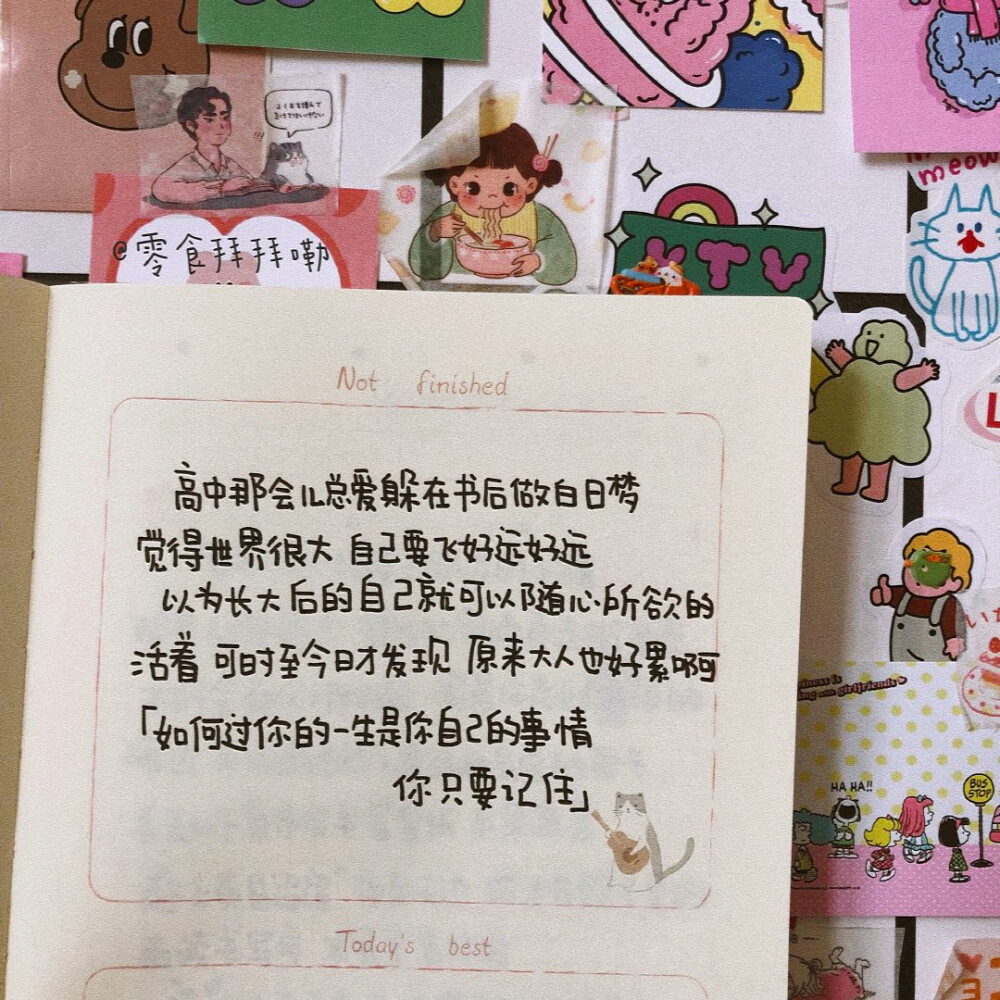 meow
@零食拜拜嘞
KTV
Not finished
高中那会儿总爱躲在书后做白日梦
觉得世界很大 自己要飞好远好远
以为长大后的自己就可以随心所欲的
活着 可时至今日才发现 原来大人也好累啊
「如何过你的一生是你自己的事情
你只要记住」
HA HA!!
BUS STOP
with girlfriends
Today's best